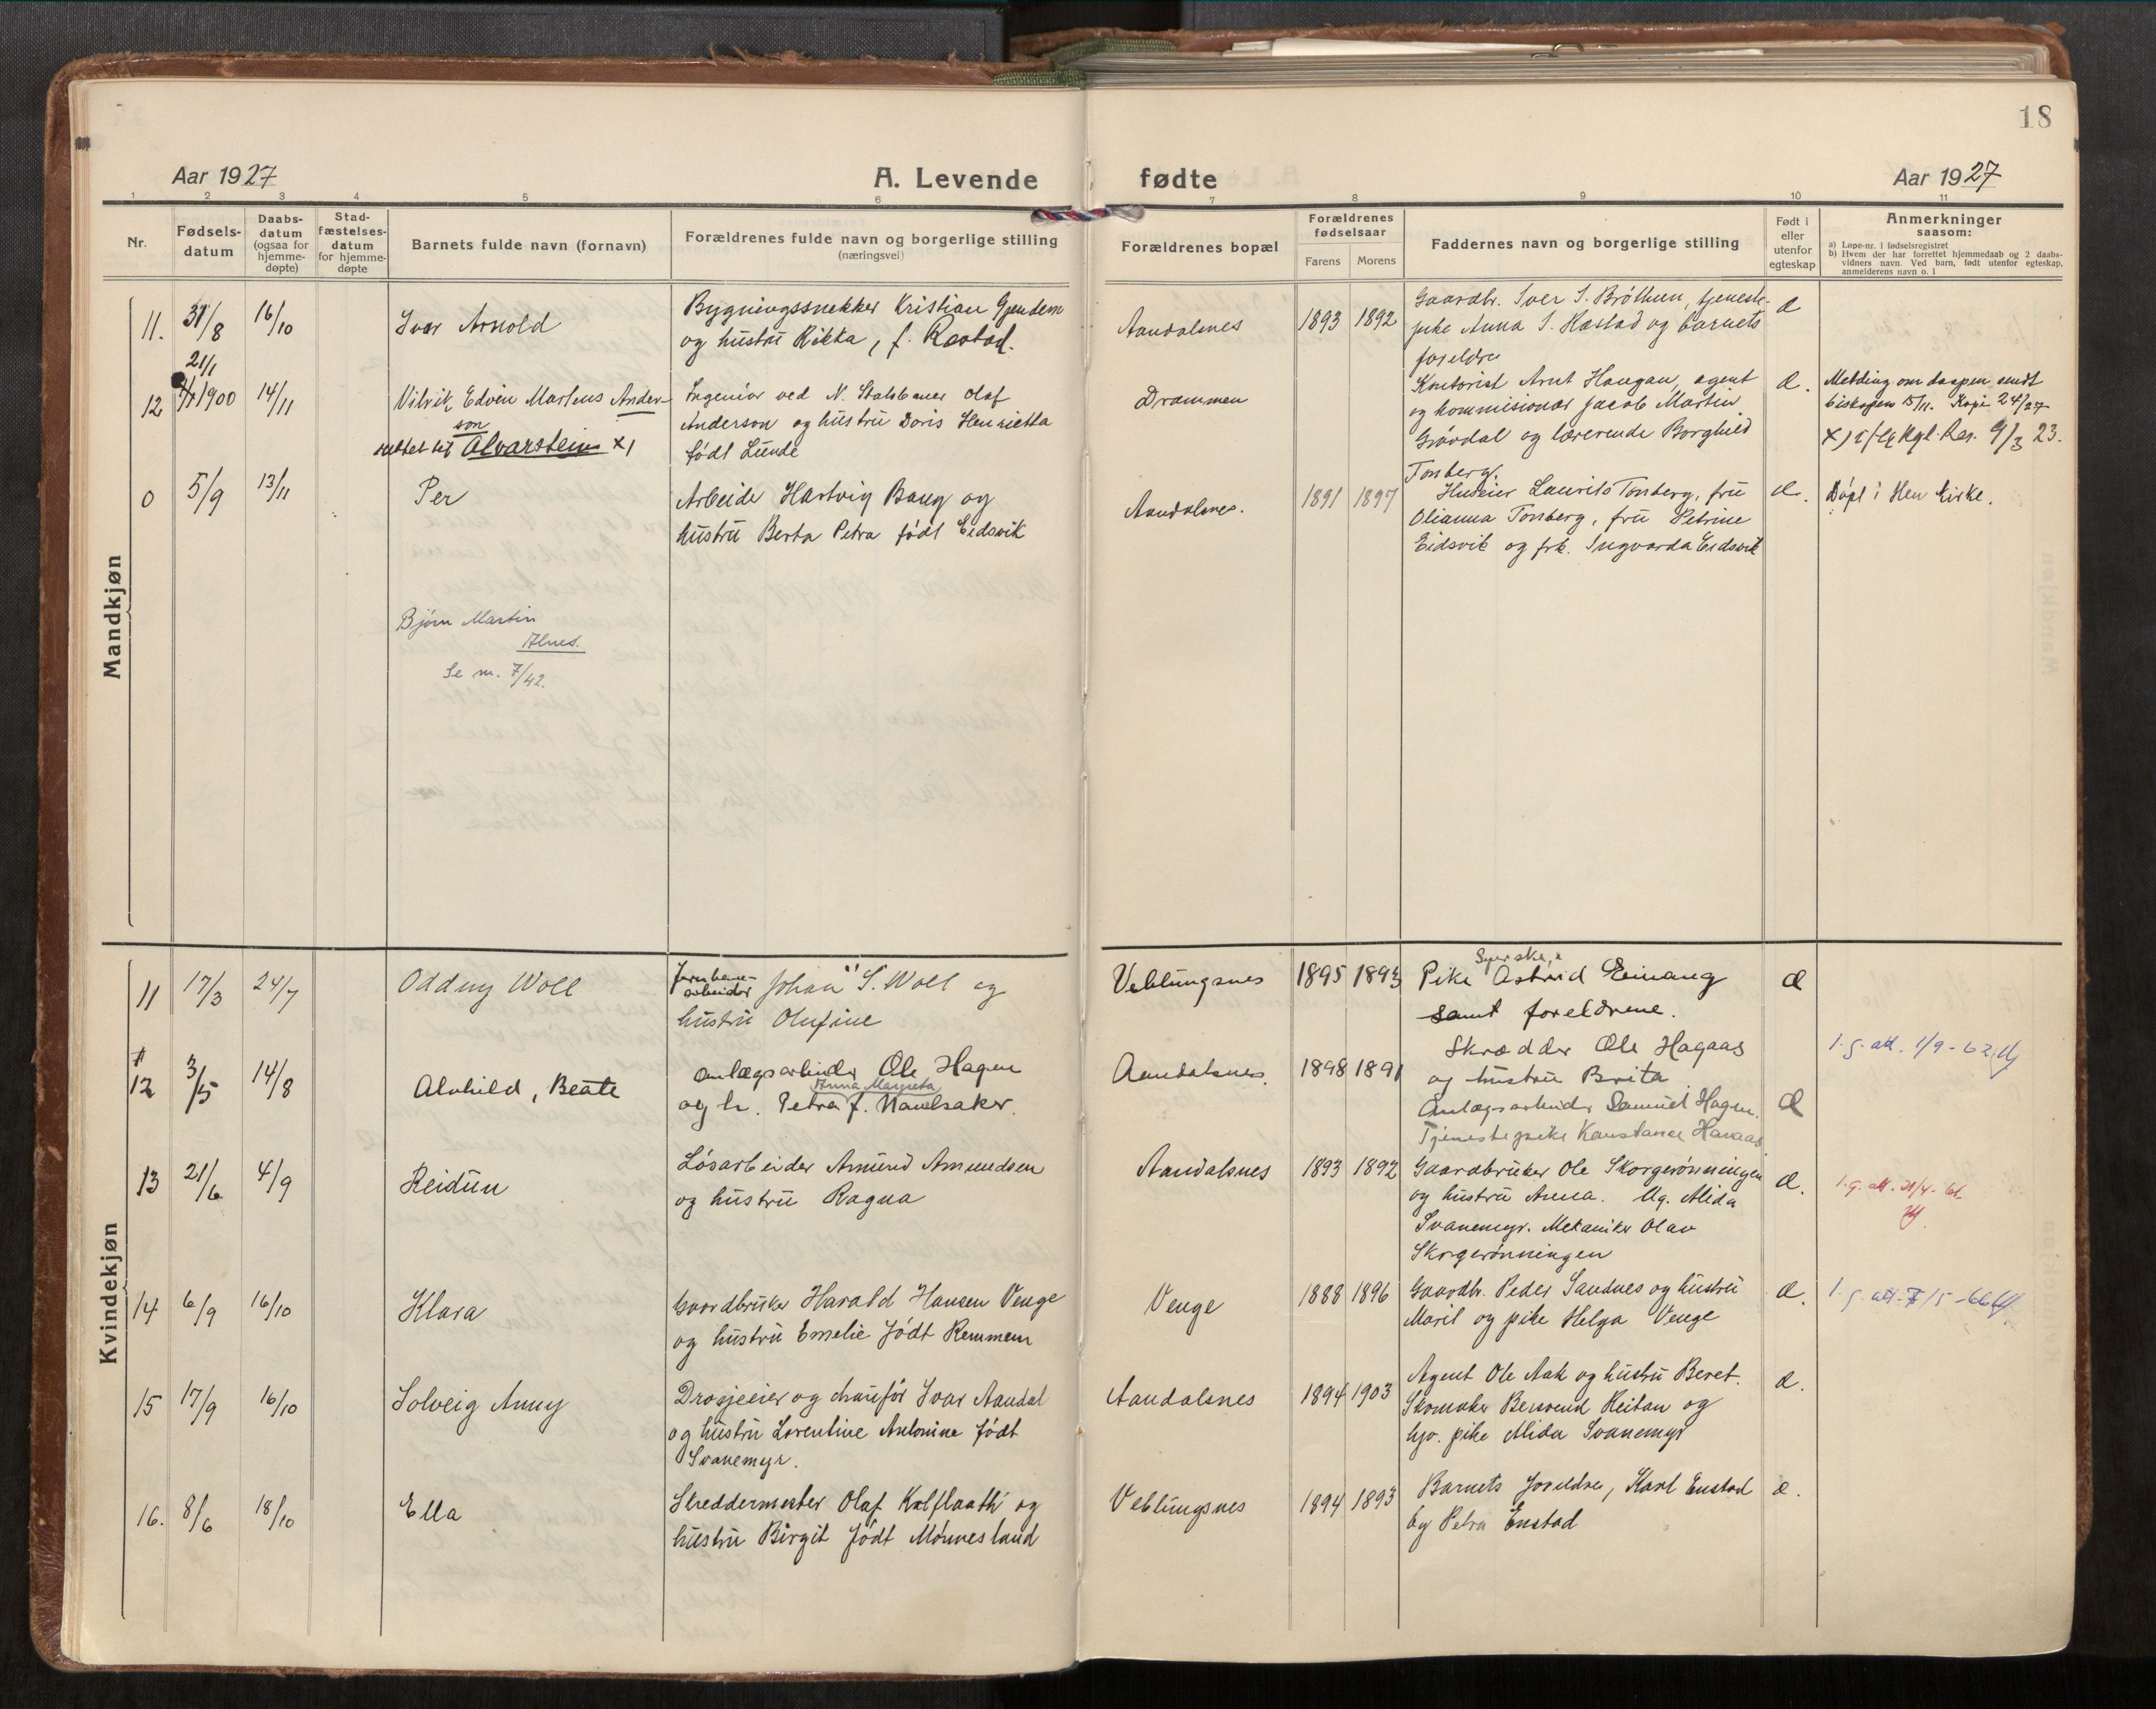 18
Aar 1927
A. Levende fødte
Aar 1927
1 2 3 4 5 6 7 8 9 10 11
Nr.
Fødsels-
datum
Daabs-
datum
(ogsaa for
hjemme-
døpte)
Stad-
fæstelses-
datum
for hjemme-
døpte
Barnets fulde navn (fornavn)
Forældrenes fulde navn og borgerlige stilling
(næringsvei)
Forældrenes bopæl
Forældrenes
fødselsaar
Farens Morens
Faddernes navn og borgerlige stilling
Født i
eller
utenfor
egteskap
Anmerkninger
saasom:
a) Løpe-nr. i fødselsregistret
b) Hvem der har forrettet hjemmedaab og 2 daabs-
vidners navn. Ved barn, født utenfor egteskap,
anmelderens navn o. l
Mandkjøn
11. 31/8 16/10
Ivar Arnold
Bygningssnekker Kristian Gjendem
og hustru Rikka, f.
Aandalsnes
1893 1892
Gaardbr. Iver S. Brøthen, tjeneste-
pike Anna S. og barnets
foreldre
æ
12 21/1 1900 14/11
Vilvik Edvin Martens Ander-
son
rettet til Alvarstein x)
Ingeniør ved N. Statsbaner Olaf
Anderson og hustru Doris Henrietta
født Lunde
Drammen
Kontorist Arnt Haugan, agent
og kommisionær Jacob Martin
Grøvdal og lærerinde Borghild
Tonberg.
æ.
Melding om daapen sendt
biskopen 15/11. Kopi 24/27
x) Kgl. Res. 9/3 23.
0 5/9 13/11
Per
Arbeider Hartvig Baug og
hustru Berta Petra født Eidsvik
Aandalsnes.
1891 1897
Huseier Laurits Tonberg, fru
Olianna Tonberg, fru Petrine
Eidsvik og frk. Ingvarda Eidsvik
æ.
Døpt i Hen kirke.
Bjørn Martin
Alnes.
Se nr. 7/42.
Kvindekjøn
11 17/3 24/7
Oddny Woll
Jernbane-
arbeider Johan S. Woll og
hustru Olufine
Veblungsnes
1895 1893
Syerske,
Pike Astrid Einang
samt foreldrene.
æ
12 3/5 14/8
Alvhild, Beate
Anlægsarbeider Ole Hagen
Anna Margreta
og h. Petra f.
Aandalsnes.
1898 1891
Skrædder Ole Hagaas
og hustru Brita
Anlægsarbeider Samuel Hagen.
Tjenestepike Konstance
æ
1.g. att. 1/9-62
13 21/6 4/9
Reidun
Løsarbeider Amund Amundsen
og hustru Ragna
Aandalsnes
1893 1892
Gaardbruker Ole Skorgerønningen
og hustru Anna. Ug. Alida
Svanemyr. Mekaniker Olav
Skorgerønningen
æ.
1.g. att. 21/4-61
14 6/9 16/10
Klara
Gaardbruker Harald Hansen Venge
og hustru Emelie født Remmem
Venge
1888 1896
Gaardbr. Peder Sandnes og hustru
Marit og pike Helga Venge
æ.
1.g. att. 7/5-66
15 17/9 16/10
Solveig Anny
Drosjeeier og chaufør Ivar Aandal
og hustru Lorentine Antonine født
Svanemyr.
Aandalsnes
1894 1903
Agent Ole Aak og hustru Beret.
Skomaker Bersvend Reitan og
hjv. pike Alida Svanemyr
æ.
16. 8/6 18/10
Ella
Skreddermester Olaf Kalflaath og
hustru Birgit født Monnesland
Veblungsnes
1894 1893
Barnets foreldre, Karl Enstad
og Petra Enstad
æ.